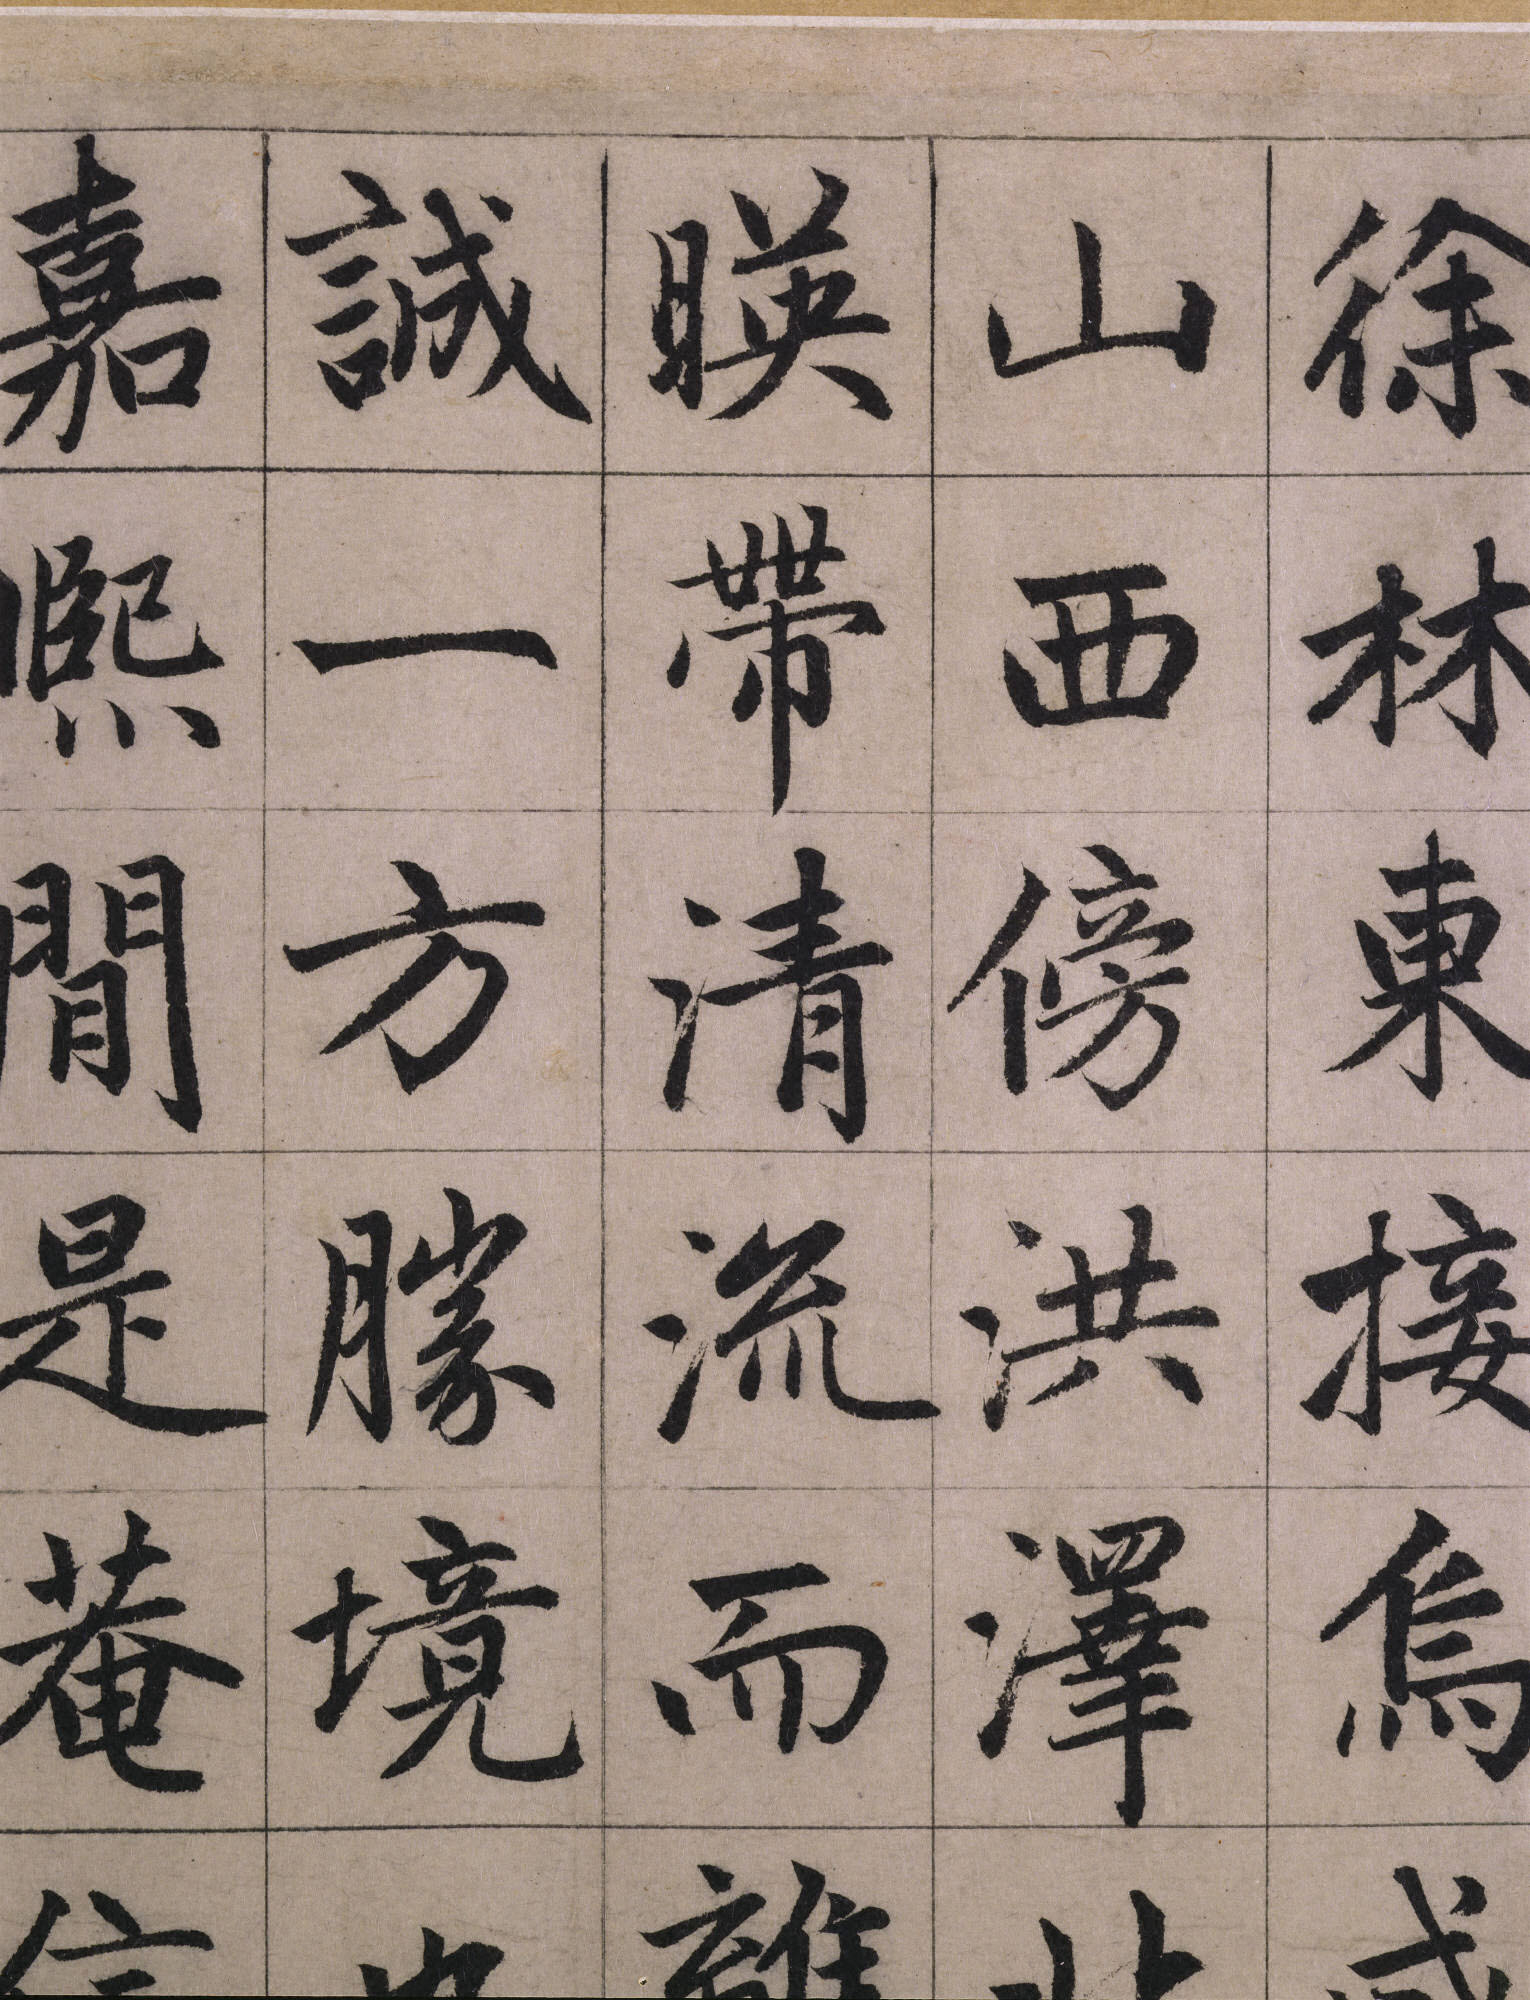 徐林東接烏
山西傍洪澤
暎帶清流而
誠一方勝境
嘉熈間是菴